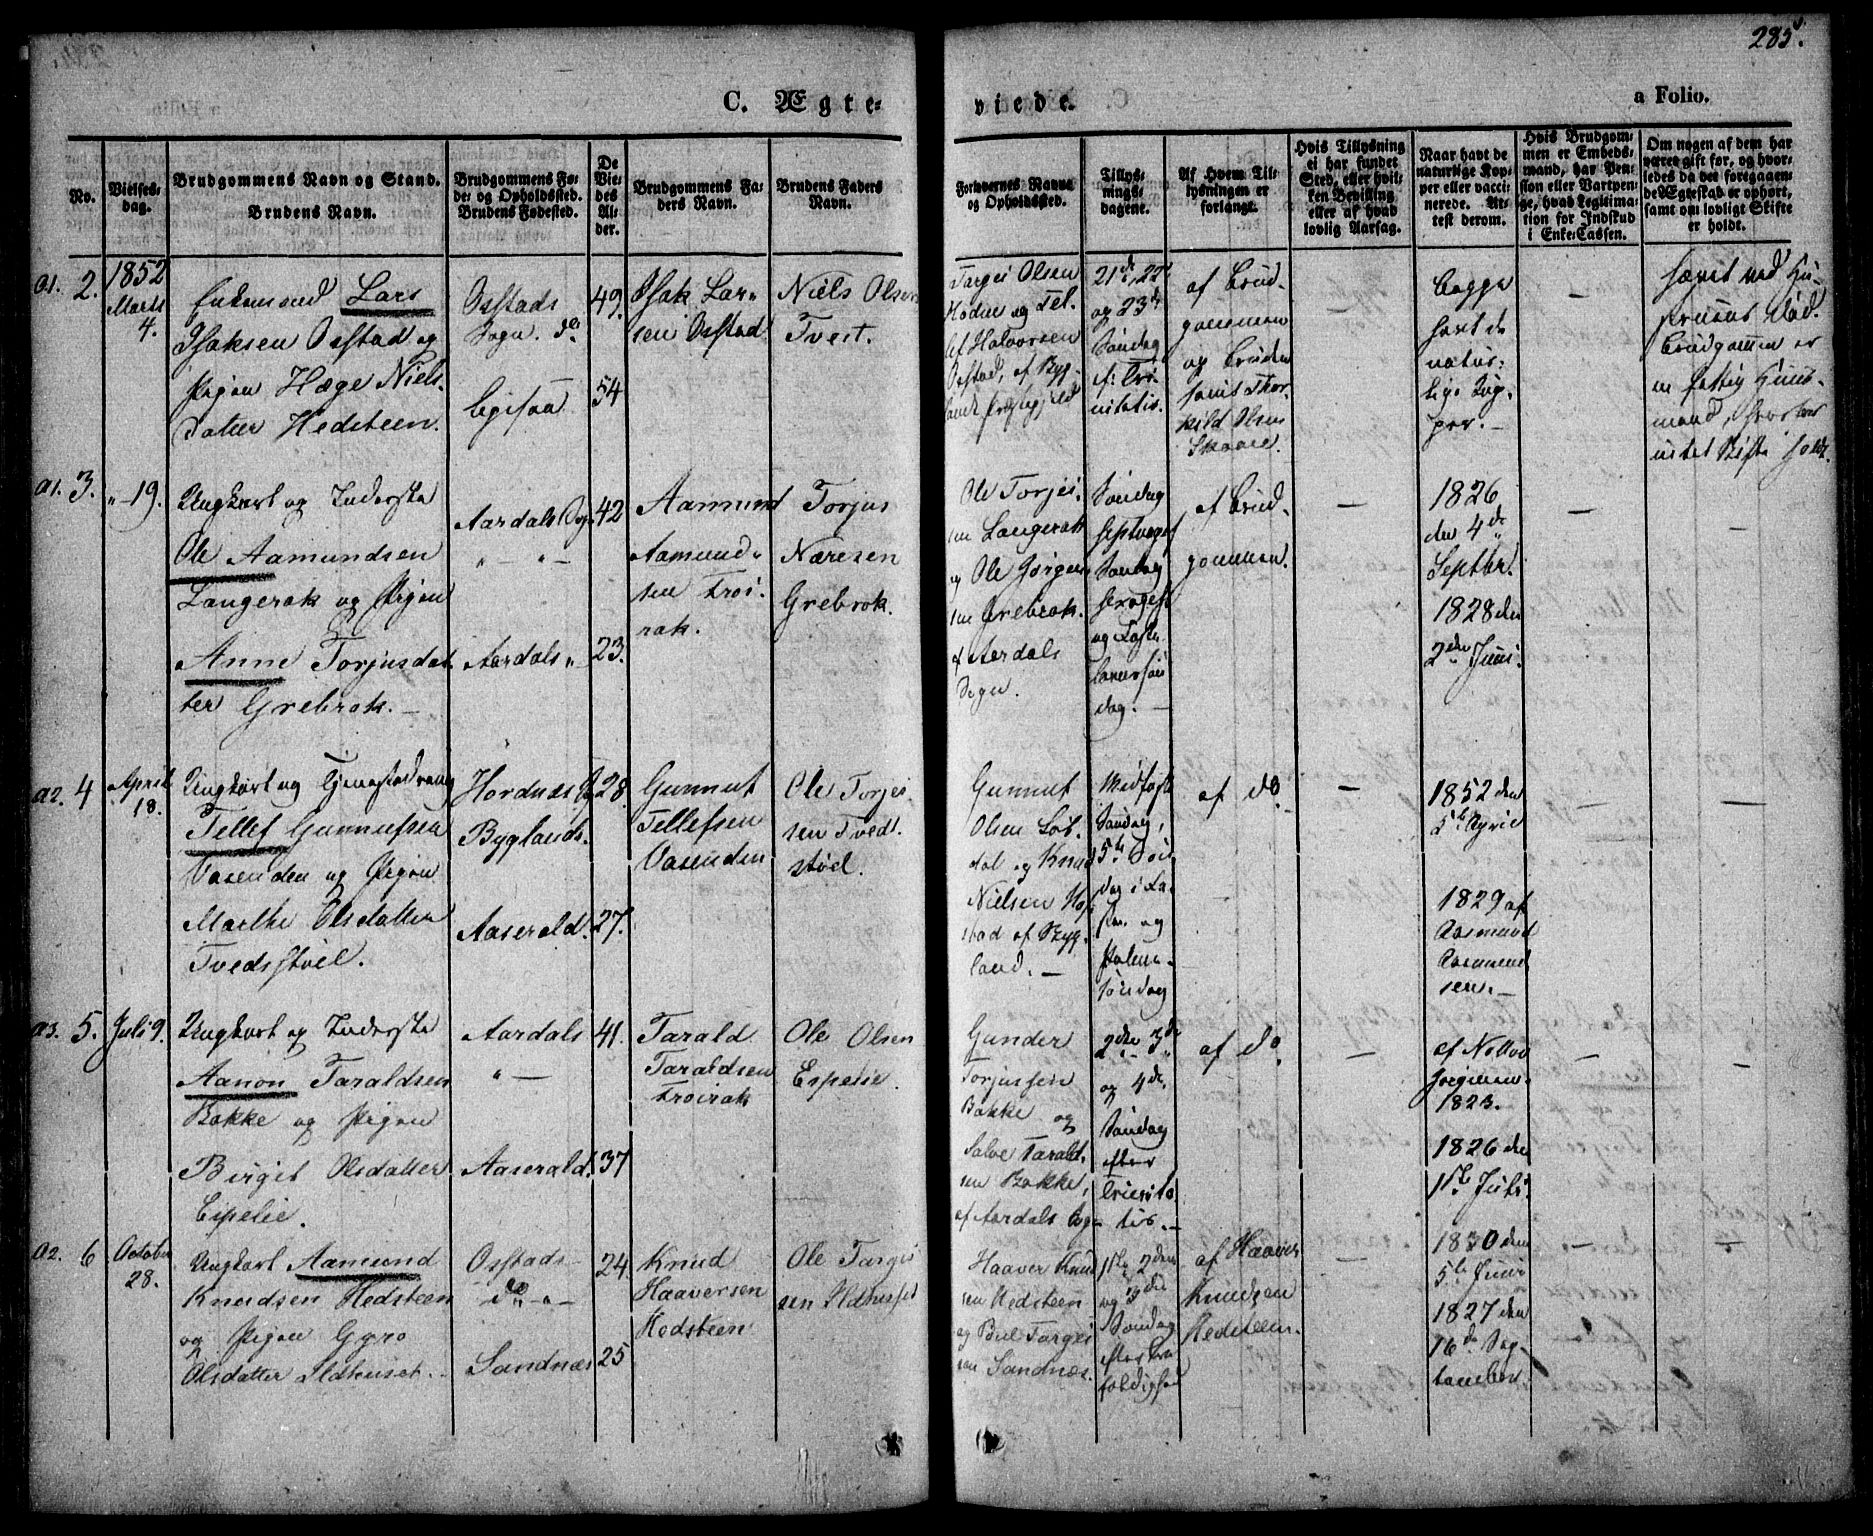 285.
C. Ægte-
viede.
a Folio.
No.
Vielses-
dag.
Brudgommens Navn og Stand.
Brudens Navn.
Brudgommens Fø-
de- og Opholdssted.
Brudens Fødested.
De
Vie-
des
Al-
der.
Brudgommens Fa-
ders Navn.
Brudens Faders
Navn.
Forlovernes Navne
og Opholdssted.
Tillys-
nings-
dagene.
Af Hvem Til-
lysningen er
forlangt.
Hvis Tillysning
ei har fundet
Sted, eller hvil-
ken Bevilling
eller af hvad
lovlig Aarsag.
Naar havt de
naturlige Kop-
per eller vacci-
nerede. At-
test derom.
Hvis Brudgom-
men er Embeds-
mand, har Pen-
sion eller Vartpen-
ge, hvad Legitima-
tion for Indskud
i Enke-Cassen.
Om nogen af dem har
været gift før, og hvor-
ledes da det foregaaen-
de Ægteskab er ophørt,
samt om lovligt Skifte
er holdt.
a1. 2.
1852
Marts
4.
Enkemand Lars
Isaksen Osstad og
Pigen Hæge Niels-
datter Hedsteen.
Osstads
Sogn. do
49.
54
Isak Lar-
sen Osstad
Niels Olsen
Tvest.
Targei Olsen
og Tel-
lef Halvorsen
Osstad, af Byg-
lands Præstegjeld
21de, 22
og 23de
Søndag
ef: Tri-
nitatis.
af Brud-
gommen
og Bruden
samt Thor-
kild Olsen
Skaare
begge
havt de
natur-
lige Kop-
per. –
–
været ved Hu-
struens Død.
Brudgommen er
en fattig Huus-
mand, hvorfor
intet Skifte holdt.
a1. 3.
" 19.
Ungkarl og Inderste
Ole Aamundsen
Langerak og Pigen
Anne Torjusdat-
ter Grebrok. –
Aardals Sogn
" – " –
Aardals "
42
23.
Aamund
Aamund-
sen Frøi-
rak.
Torjus
Næresen
Grebrok.
Ole Torjei-
sen Langerak
og Ole Jørgen-
sen Grebrok.
af Aardals
Sogn.
Søndag
Septuages
Søndag
Sexages
og Faste-
lavns søn-
dag. –
af Brud-
gommen.
–
1826
den 4de
Septbr.
1828 den
2den Juni.
–
–
a2. 4
April
18.
Ungkarl og Gjæstedreng
Tellef Gunnufsen
Vasenden og Pigen
Marthe Olsdatter
Tvedsstøel.
Hordnæs
Byglands.
Aaserald.
28.
27.
Gunnuf
Tellefsen
Vasenden
Ole Torjei
sen Tveds-
støel.
Gunnuf
Olsen
og Knud
Nielsen
stad af Byg-
land. –
Midfaste
Søndag,
5te Søn
dag i Fa-
sten og
Palme-
søndag
af do.
–
1852 den
5te April
1829 af
Aasmund
Aasmund
sen. –
–
–
a3. 5.
Juli 9.
Ungkarl og Inderste
Aanon Taraldsen
Bakke og Pigen
Birgit Olsdatter
Espelie.
Aardals
" –
Aaserald.
41.
37
Tarald
Taraldsen
Frøirak
Ole Olsen
Espelie.
Gunder
Torjussen
Bakke og
Salve Tarald-
sen Bakke,
af Aardals Sogn
2den 3de
og 4de
Søndag
efter
Trinita
tis. –
af do.
–
1823.
1826 den
1ste Juli
–
–
a2. 6
October
28.
Ungkarl Aamund
Knudsen Hedsteen
og Pigen Gyro
Olsdatter Ildhuset.
Osstads
do –
Sandnæs
24.
25
Knud
Haaversen
Hedsteen
Ole Targei
sen Ildhuset
Haaver Knud
sen Hedsteen
og Targei
sen Sandnæs.
1ste, 2den
og 3die
Søndag
efter Tre
foldighed
af Haaver
Knudsen
Hedsteen.
–
1830 den
5te Juni
1827 den
16de Sep-
tember.
–
–